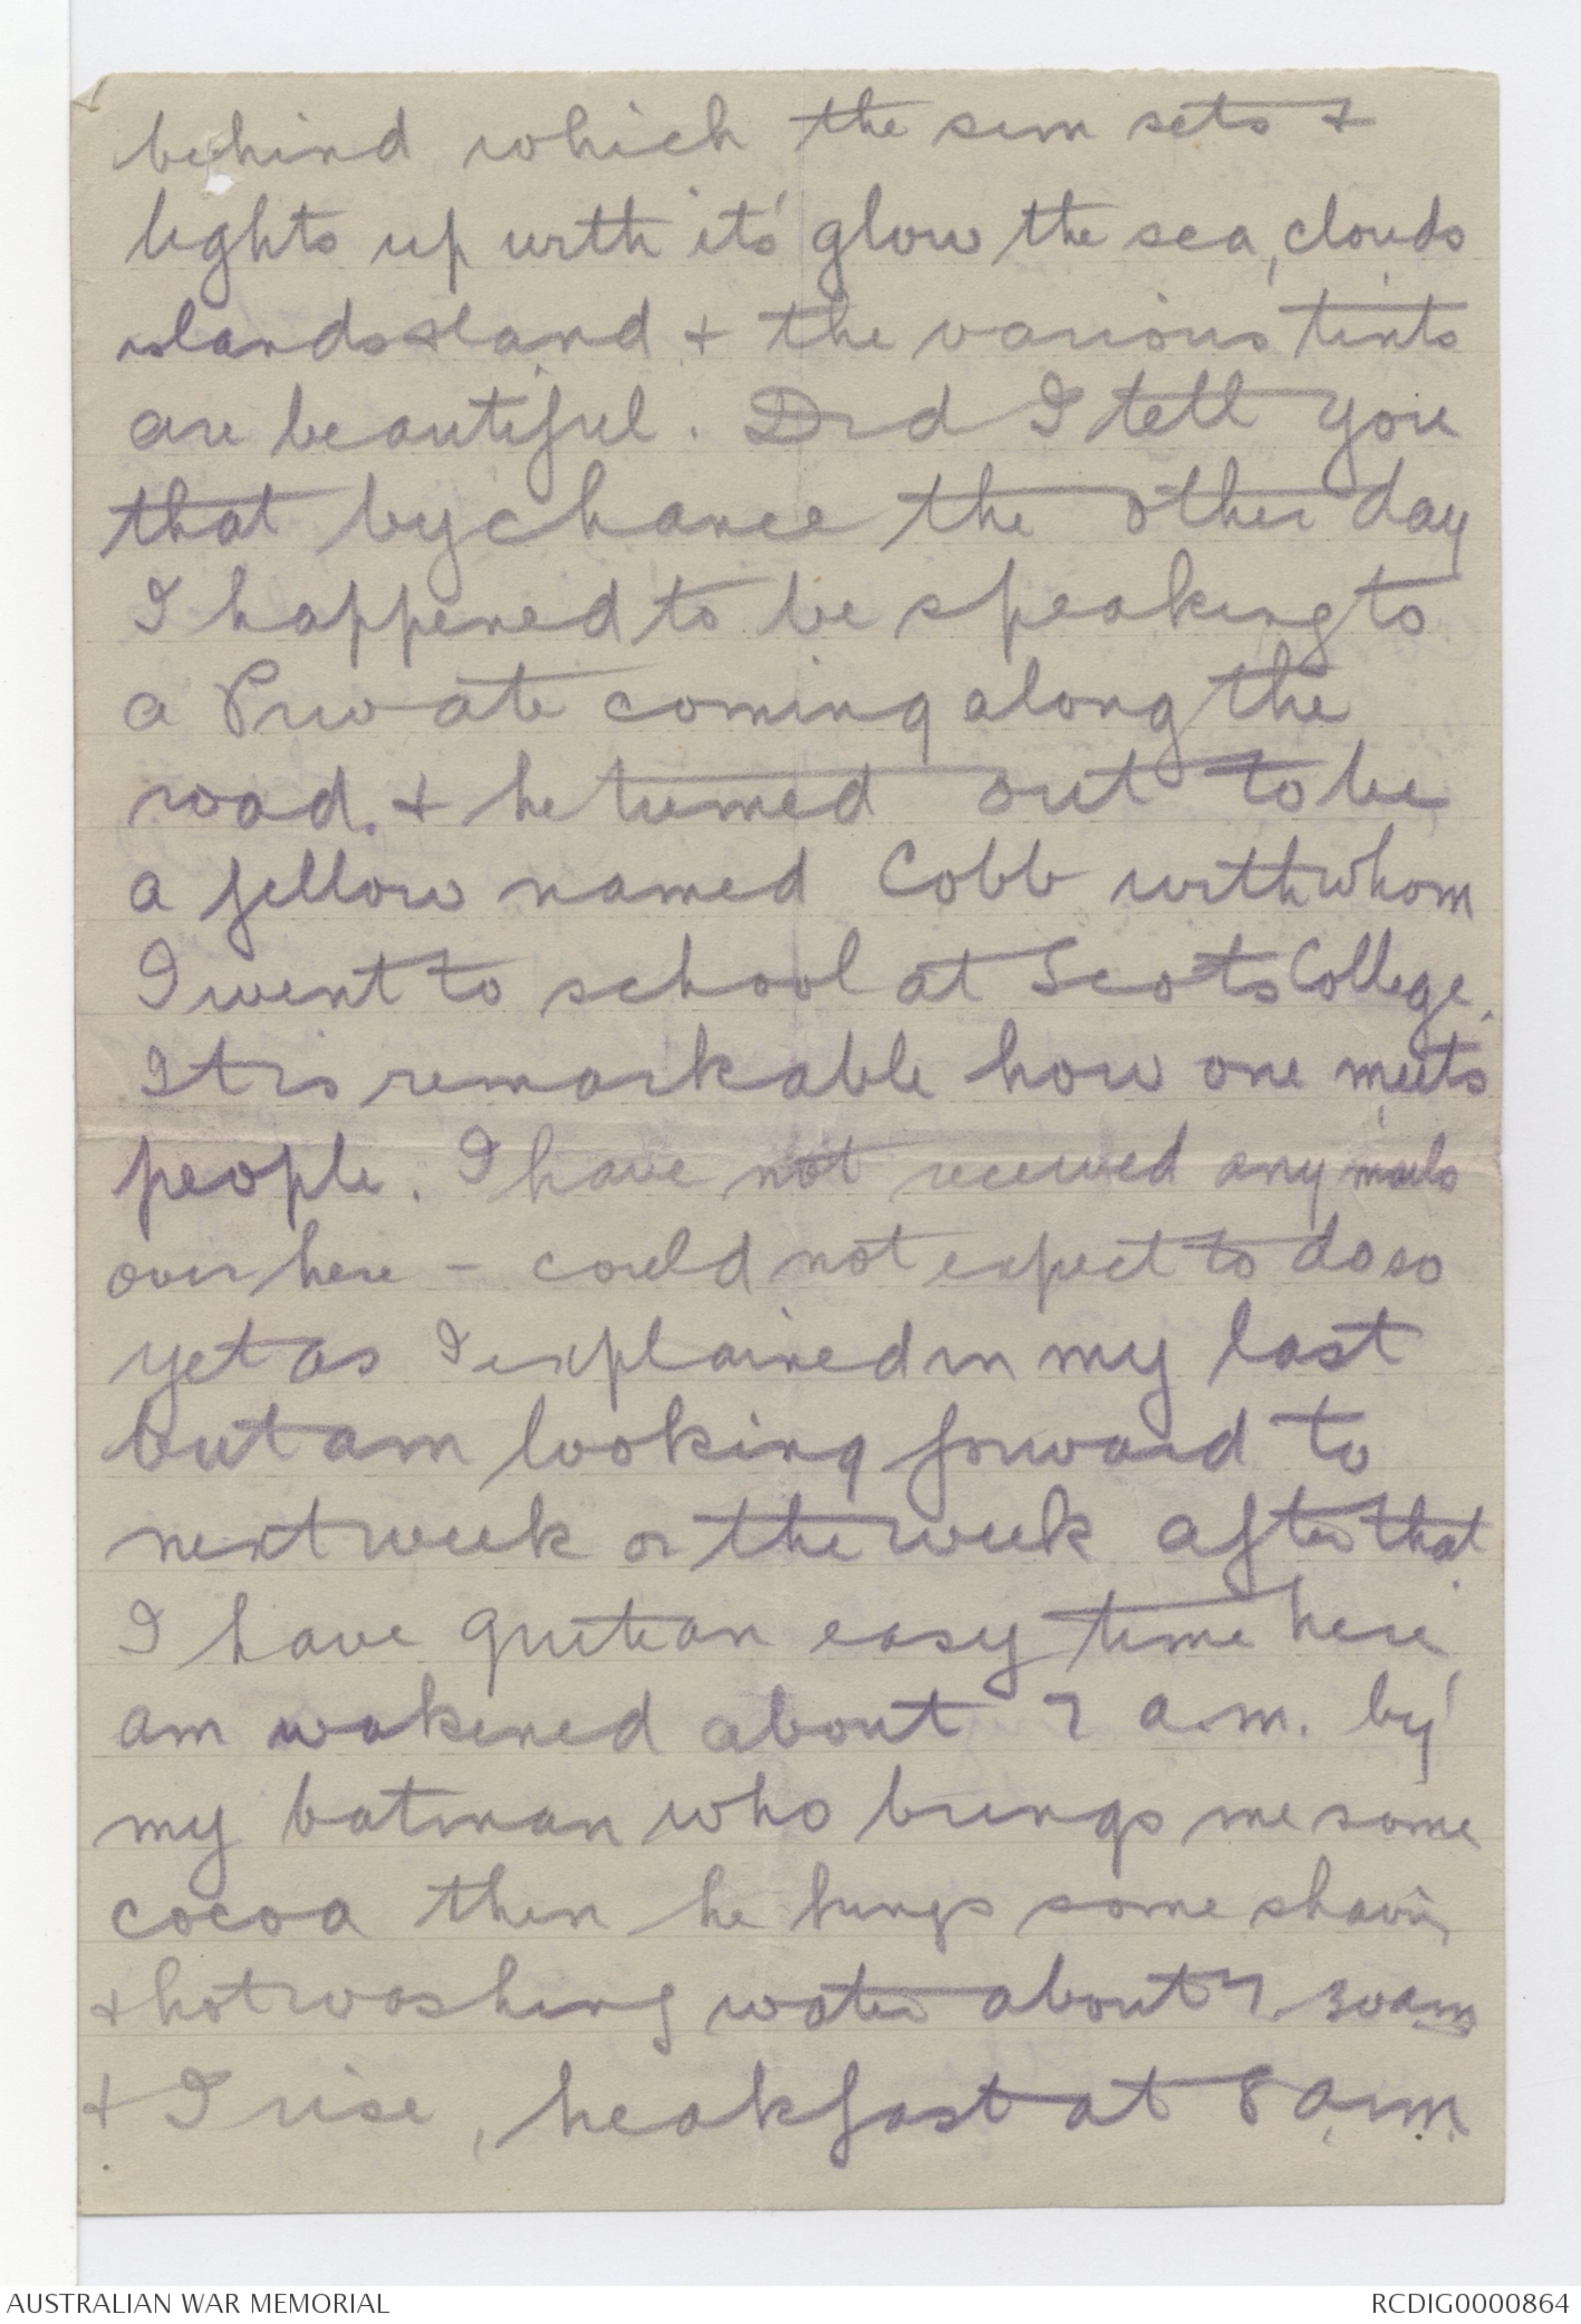 behind which the sun sets +
lights up with it's glow the sea, clouds
islands + land + the various tints
are beautiful. Did I tell you
that by chance the other day
I happened to be speaking to
a Private coming along the
road. + he turned out to be
a fellow named Cobb with whom
I went to school at Scots College.
It is remarkable how one meets
people. I have not received any mails
over here - could not expect to do so
yet as I explained in my last
but am looking forward to
next week or the week after that.
I have quite an easy time here,
am wakened about 7 a.m. by
my batman who brings me some
cocoa then he brings some shaving
+ hot washing water about 7.30am
+ I rise, breakfast at 8 a.m.
AUSTRALIAN WAR MEMORIAL
RCDIG0000864